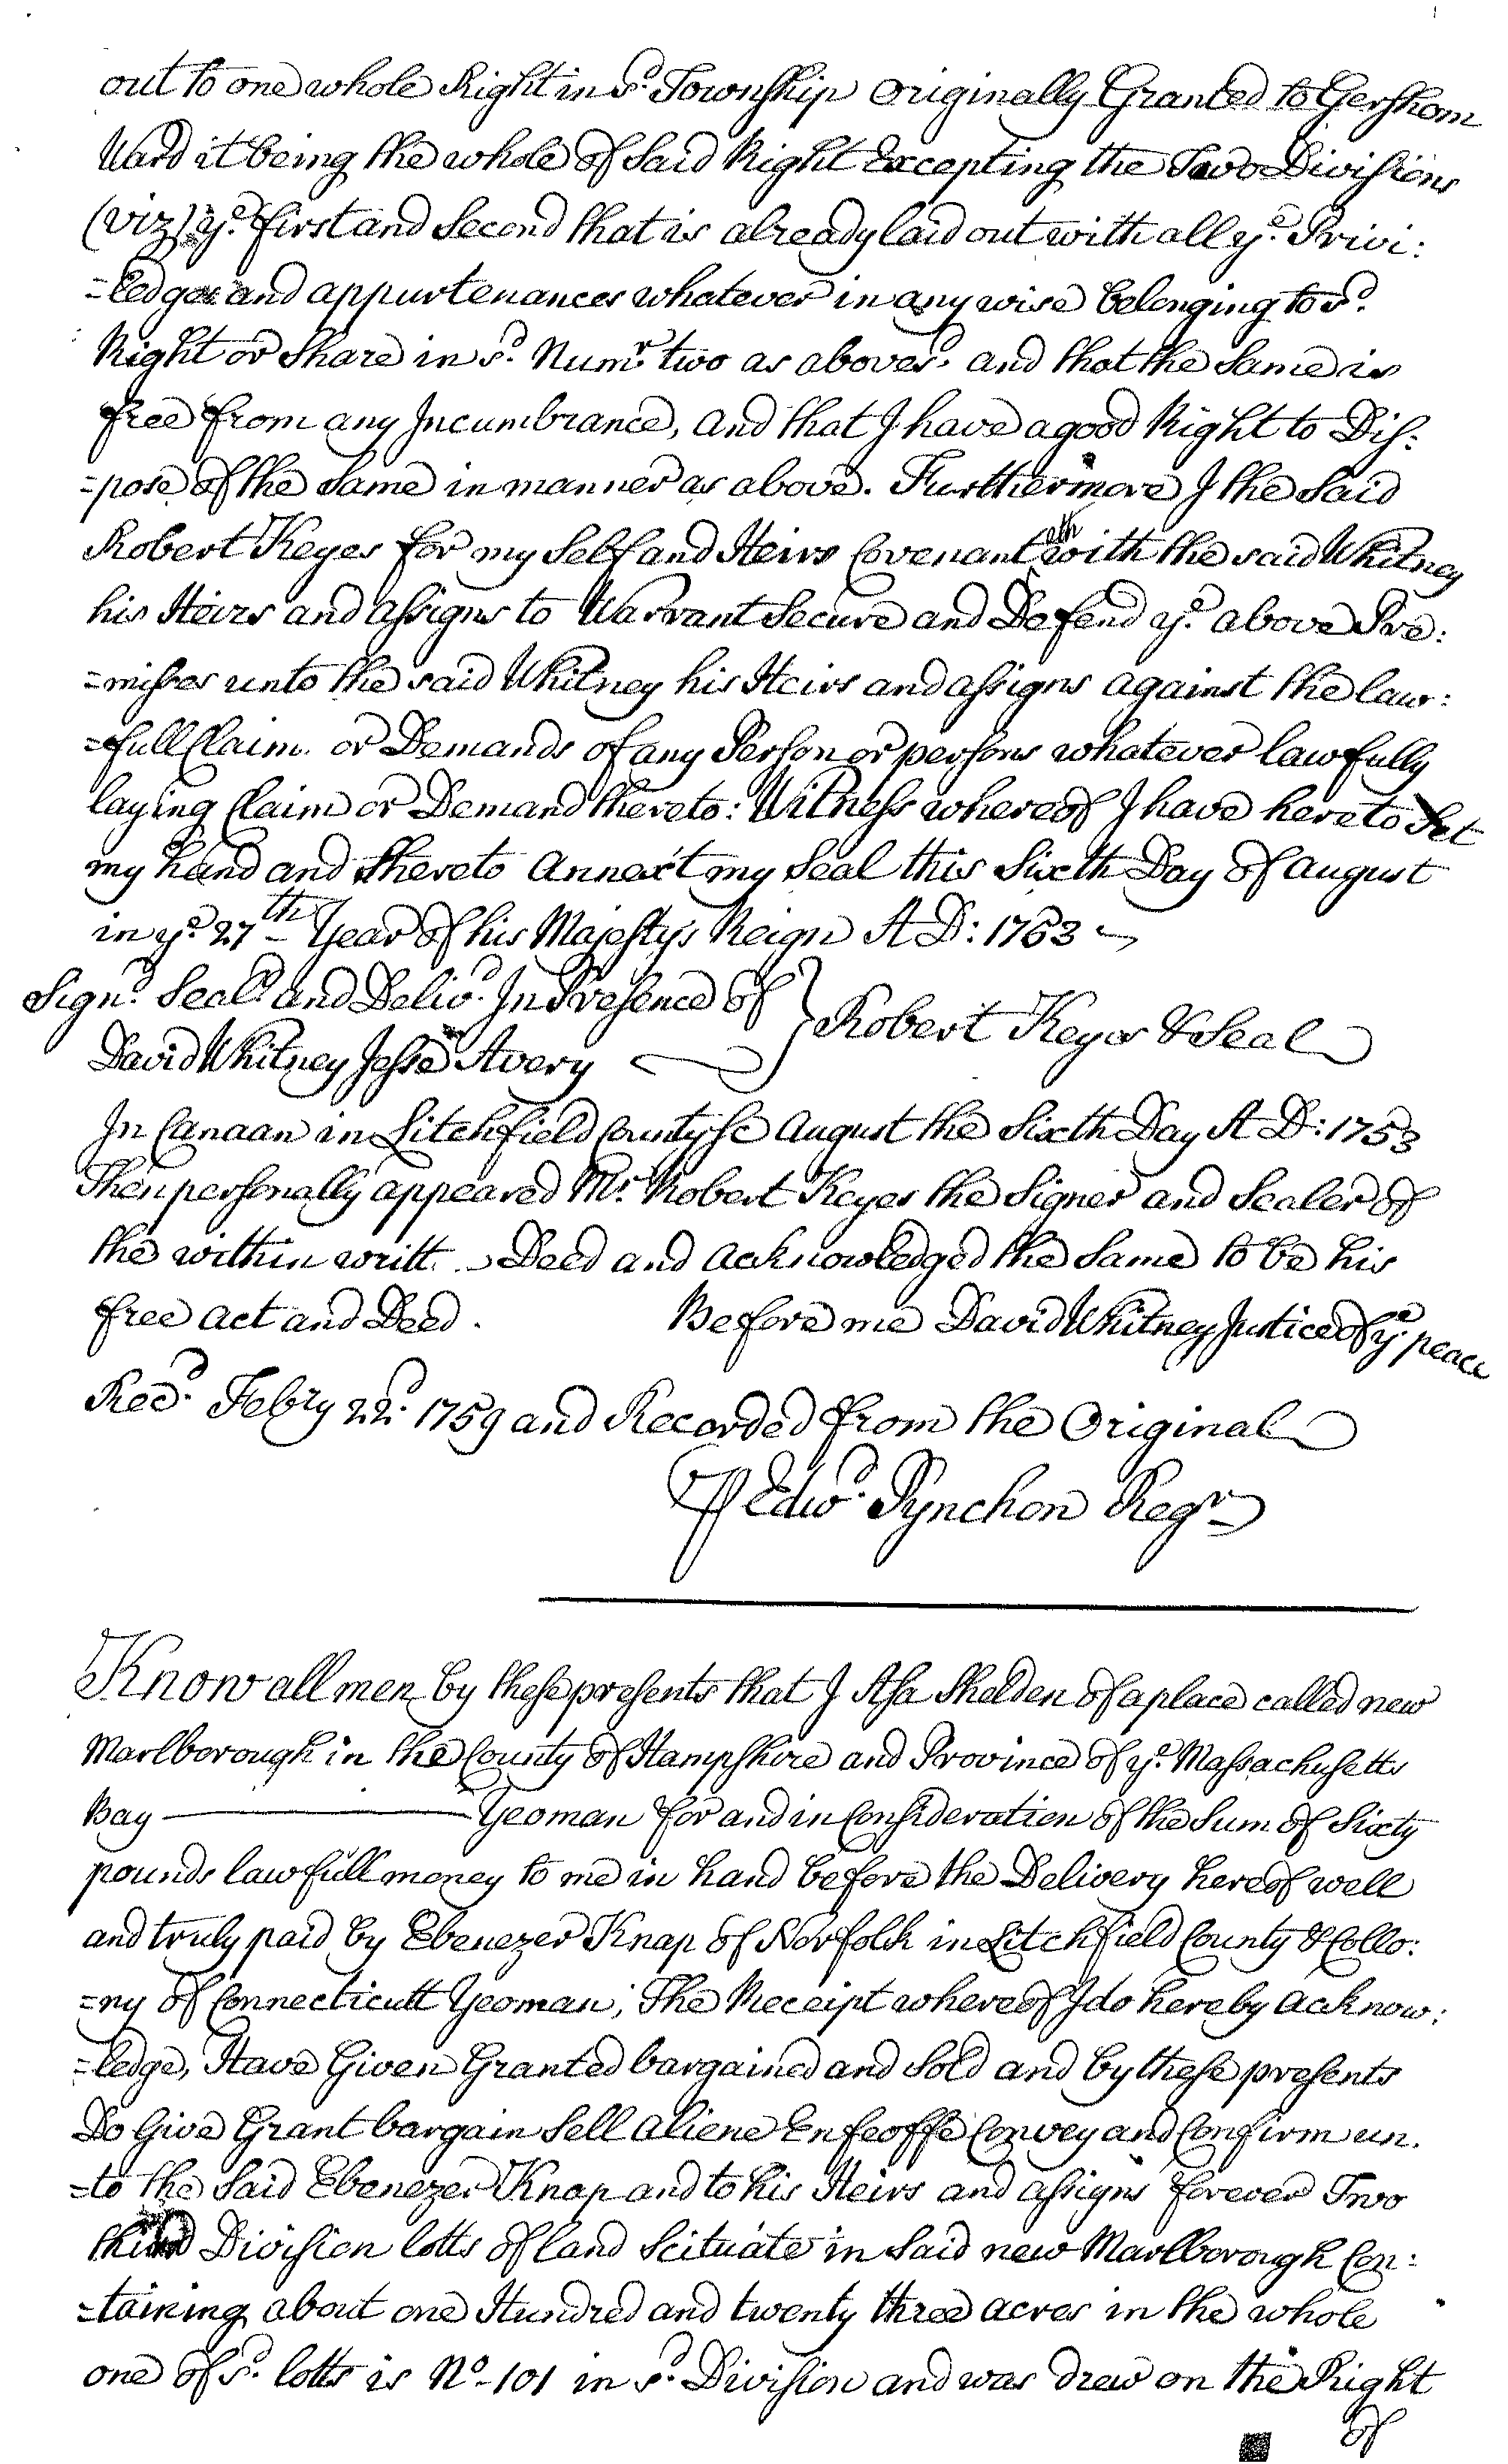 out to one whole Right in sd. Township Originally Granted to Gershom
Ward it being the whole of Said Right Excepting the Two Divisions
(viz) ye. first and Second that is already laid out with all ye. Privi:
=ledges and appurtenances whatever in any wise belonging to sd.
Right or Share in sd. Numr. two as abovesd. and that the Same is
free from any Incumbrance, and that I have a good Right to Dis:
=pose of the Same in manner as above. Furthermore I the Said
Robert Keyes for my Self and Heirs Covenant with the said Whitney
his Heirs and assigns to Warrant Secure and Defend ye. above Pre:
=misses unto the said Whitney his Heirs and assigns against the law:
=full Claim or Demands of any Person or persons whatever lawfully
laying Claim or Demand thereto: Witness whereof I have hereto Set
my hand and thereto Annext my Seal this Sixth Day of August
in ye. 27th Year of his Majestys Reign A D: 1753
Signd. Seald. and Delivd. In Presence of } Robert Keyes & Seal
David Whitney Jesse Avery
In Canaan in Litchfield County Sc August the Sixth Day A D: 1753
Then personally appeared Mr. Robert Keyes the Signer and Sealer of
the within writt. Deed and acknowledged the Same to be his
free act and Deed. Before me David Whitney Justice of ye. peace
Recd. Febry 22d. 1759 and Recorded from the Original
P Edwd. Pynchon Regr
Know all men by these presents that I Asa Shelden of a place called new
Marlborough in the County of Hampshire and Province of ye. Massachusetts
Bay Yeoman for and in Consideration of the Sum of Sixty
pounds lawfull money to me in hand before the Delivery hereof well
and truly paid by Ebenezer Knap of Norfolk in Litchfield County & Collo:
=ny of Connecticutt Yeoman; The Receipt whereof I do hereby acknow:
=ledge, Have Given Granted bargained and Sold and by these presents
Do Give Grant bargain Sell aliene Enfeoffe Convey and Confirm un.
=to the Said Ebenezer Knap and to his Heirs and assigns forever Two
third Division lotts of land Scituate in Said new Marlborough Con:
=taining about one Hundred and twenty three acres in the whole
one of sd. lotts is No. 101 in sd. Division and was drew on the Right
of